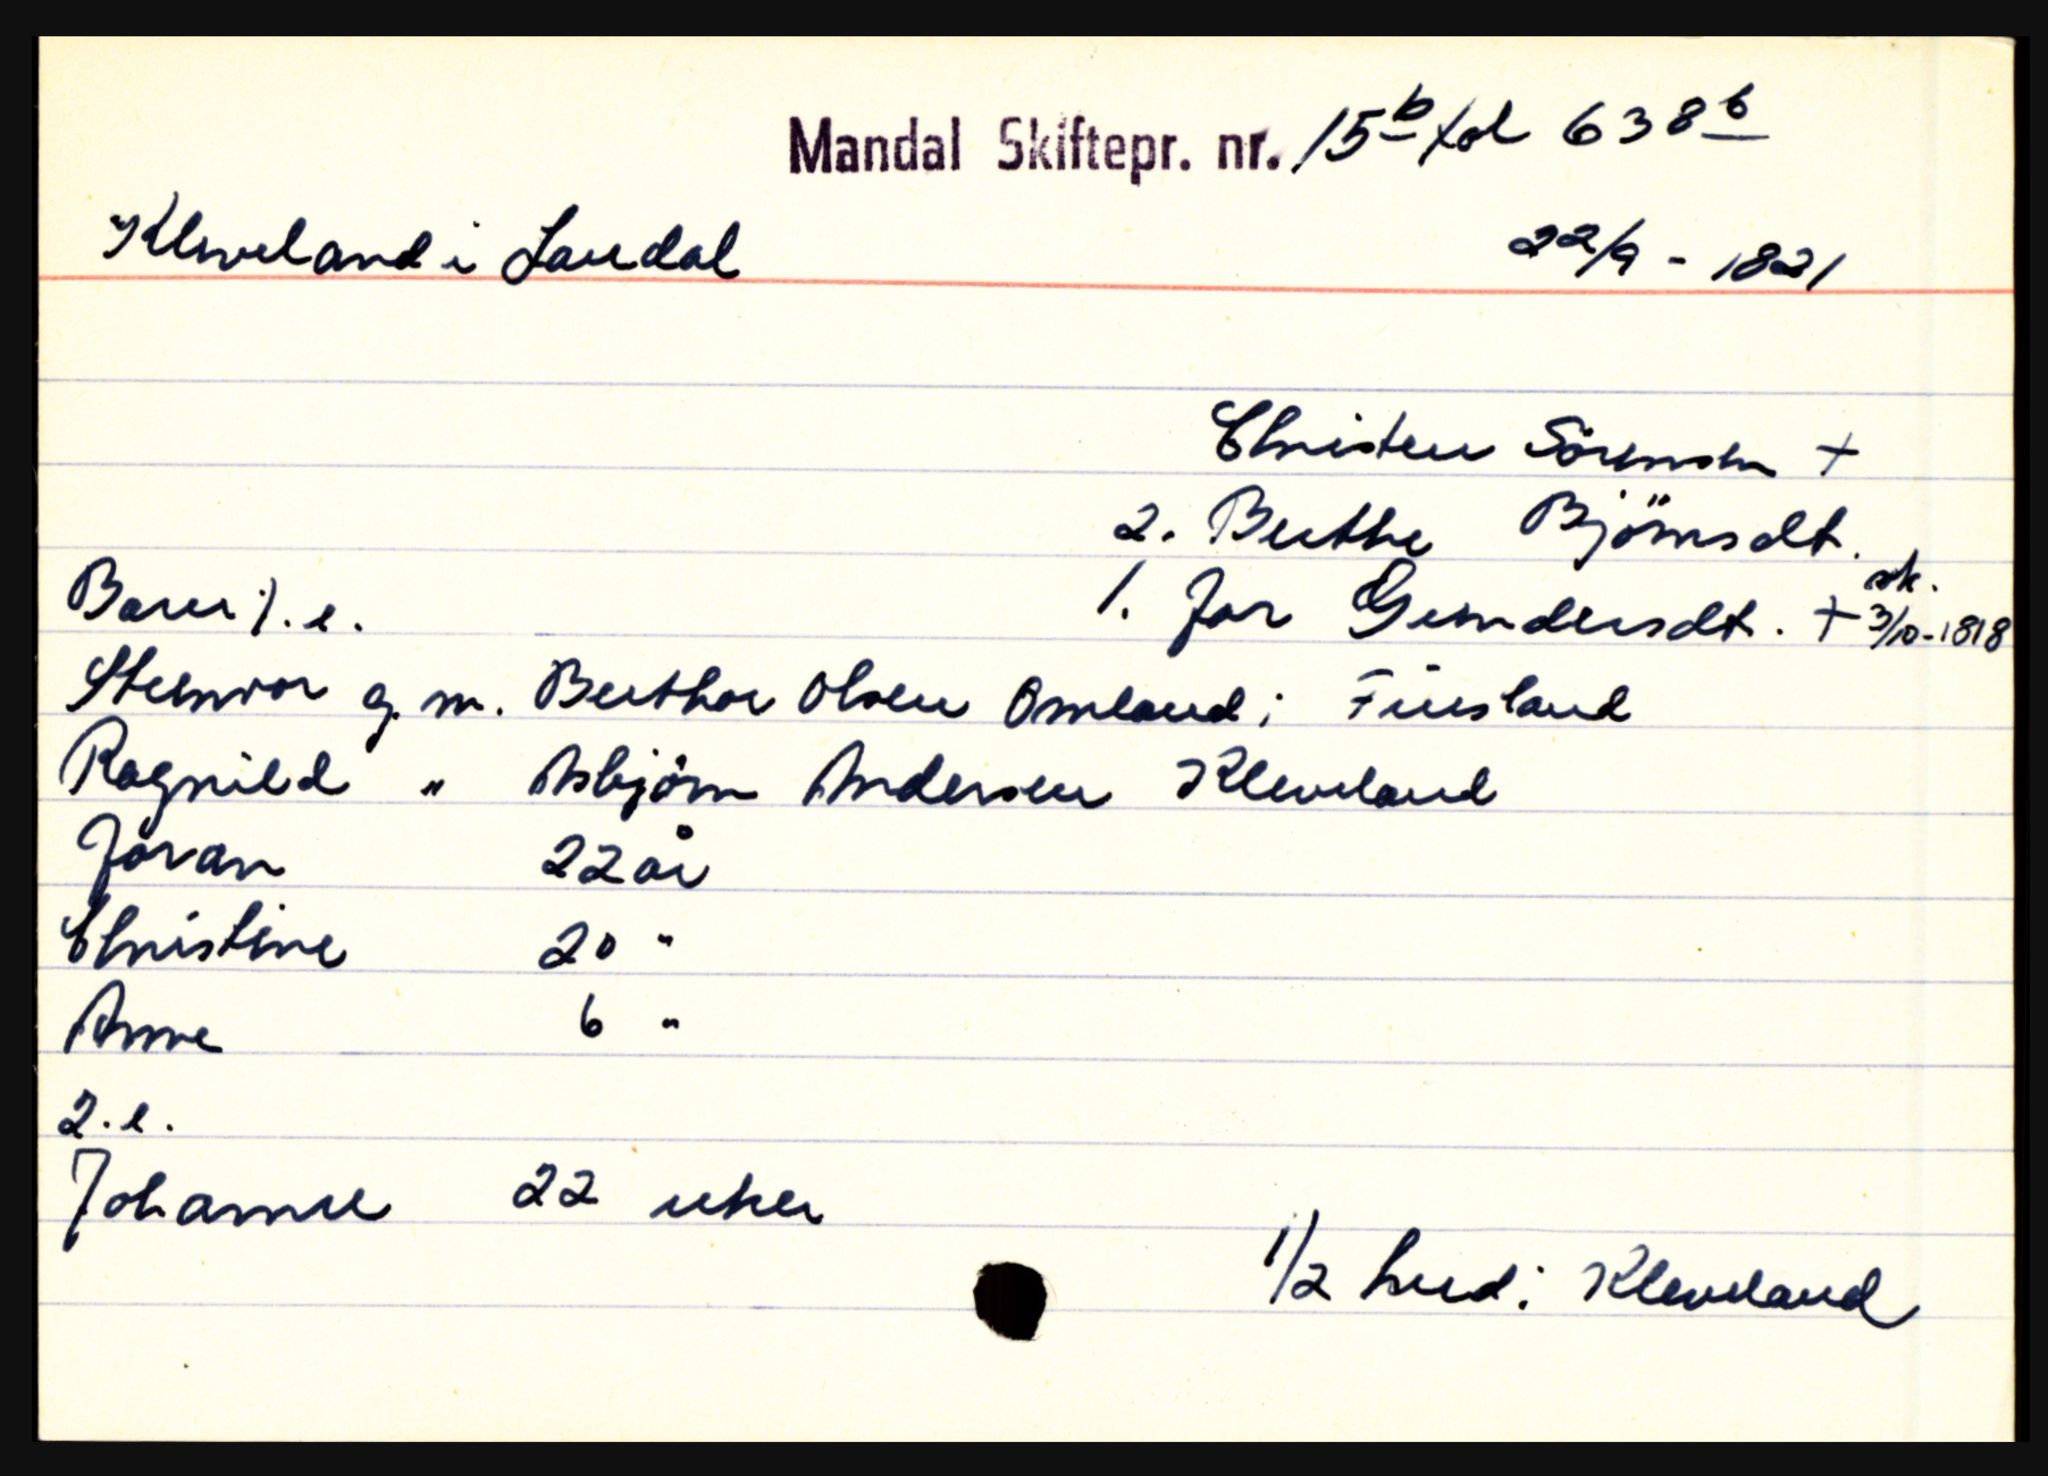 Mandal Skiftepr. nr. 15b fol 638b
Kleveland i Laudal 22/9 - 1821
Christen Sörensen +
2. Berthe Björnsdt.
Barn 1.e. 1. Jor Gundersdt. + sk. 3/10-1818
Steinvor g.m. Berthor Olsen Omland i Finsland
Ragnild " Asbjörn Andersen Kleveland
Joran 22 år
Christine 20 "
Anne 6 "
2.e.
Johanne 22 uker
1/2 hud i Kleveland